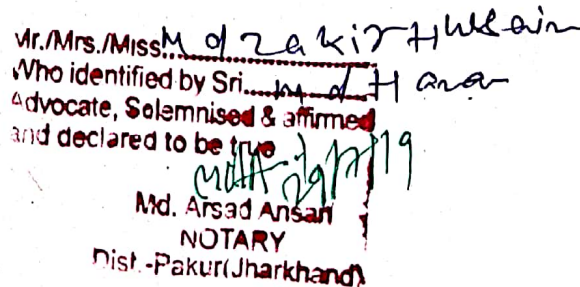 Mr./Mrs./Miss. Md Zakir Hussain
Who identified by Sri...... Md H
Advocate, Solemnised & affirmed
and declared to be true
29/7/19
Md. Arsad Ansari
NOTARY
Dist.-Pakur(Jharkhand)